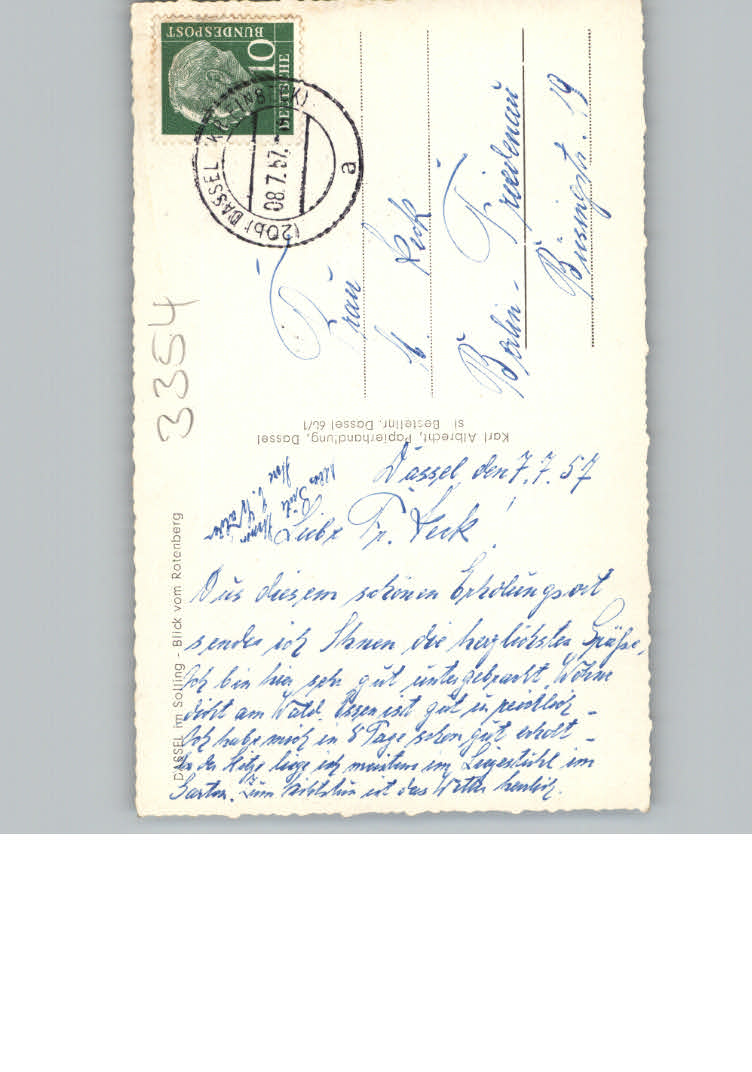 DEUTSCHE
BUNDESPOST
10
(20b) DASSEL (KR. EINBECK)
08.7.57.
a
3354
Frau
Berlin - Friedenau
Büsingstr. 19
Karl Albrecht, Papierhandlung, Dassel
si Bestellnr. Dassel 60/1
DASSEL im Solling - Blick vom Rotenberg
Dassel, den 7.7.57
Liebe Fr. Leck!
Aus diesem schönen Erholungsort
sende ich Ihnen die herzlichsten Grüße,
Ich bin hier sehr gut untergebracht. Wohne
dicht am Wald. Essen ist gut u. reichlich -
Ich habe mich in 8 Tage schon gut erholt -
Bei der Hitze liege ich meistens im Liegestuhl im
Garten. Zum Nichtstun ist das Wetter herrlich.
Ihre